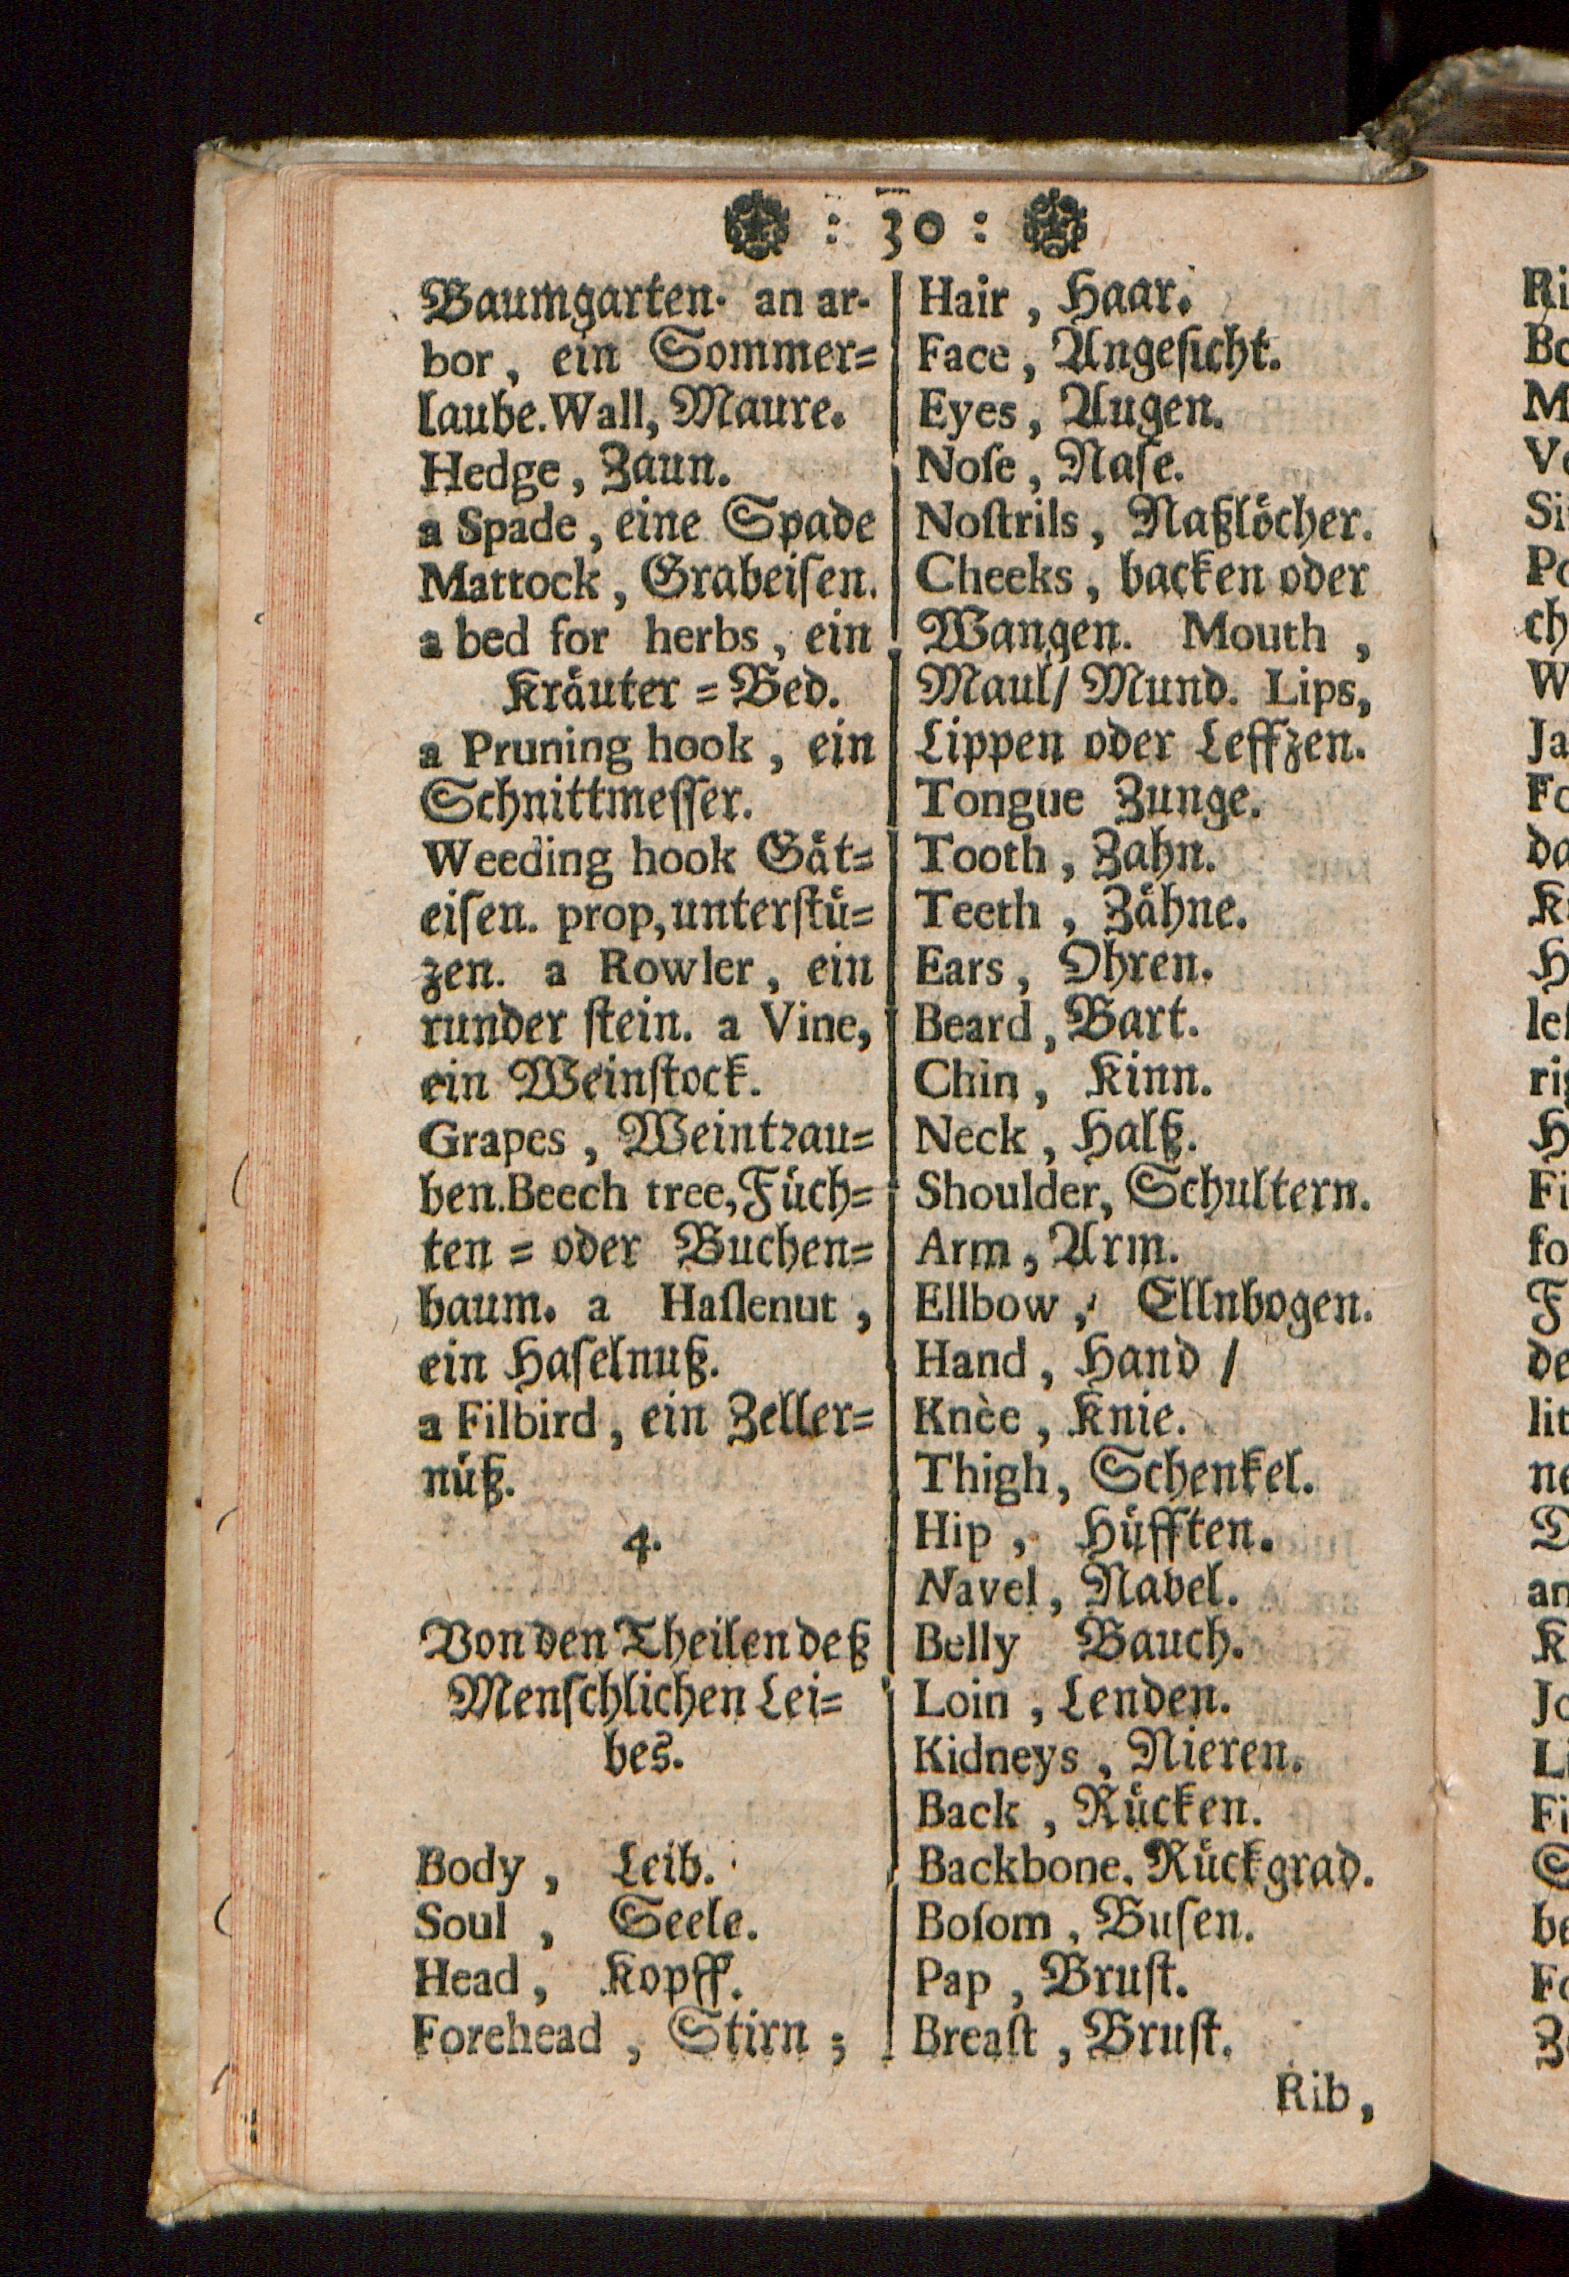 : 30 :
Baumgarten. an ar-
bor, ein Sommer=
laube. Wall, Maure.
Hedge, Zaun.
a Spade, eine Spade
Mattock, Grabeiſen.
a bed for herbs, ein
Kräuter = Bed.
a Pruning hook, ein
Schnittmeſſer.
Weeding hook Gät=
eiſen. prop, unterſtü=
zen. a Rowler, ein
runder ſtein. a Vine,
ein Weinſtock.
Grapes, Weintrau=
ben. Beech tree, Füch=
ten = oder Buchen=
baum. a Haſlenut,
ein Haſelnuß.
a Filbird, ein Zeller=
nüß.
4.
Von den Theilen deß
Menſchlichen Lei=
bes.
Body, Leib.
Soul, Seele.
Head, Kopff.
Forehead, Stirn;
Hair, Haar.
Face, Angeſicht.
Eyes, Augen.
Noſe, Naſe.
Noſtrils, Naßlöcher.
Cheeks, backen oder
Wangen. Mouth,
Maul/ Mund. Lips,
Lippen oder Leffzen.
Tongue Zunge.
Tooth, Zahn.
Teeth, Zähne.
Ears, Ohren.
Beard, Bart.
Chin, Kinn.
Neck, Halß.
Shoulder, Schultern.
Arm, Arm.
Ellbow, Ellnbogen.
Hand, Hand /
Knèe, Knie.
Thigh, Schenkel.
Hip, Hüfften.
Navel, Nabel.
Belly Bauch.
Loin, Lenden.
Kidneys, Nieren.
Back, Rücken.
Backbone. Rückgrad.
Boſom, Buſen.
Pap, Bruſt.
Breaſt, Bruſt.
Rib,